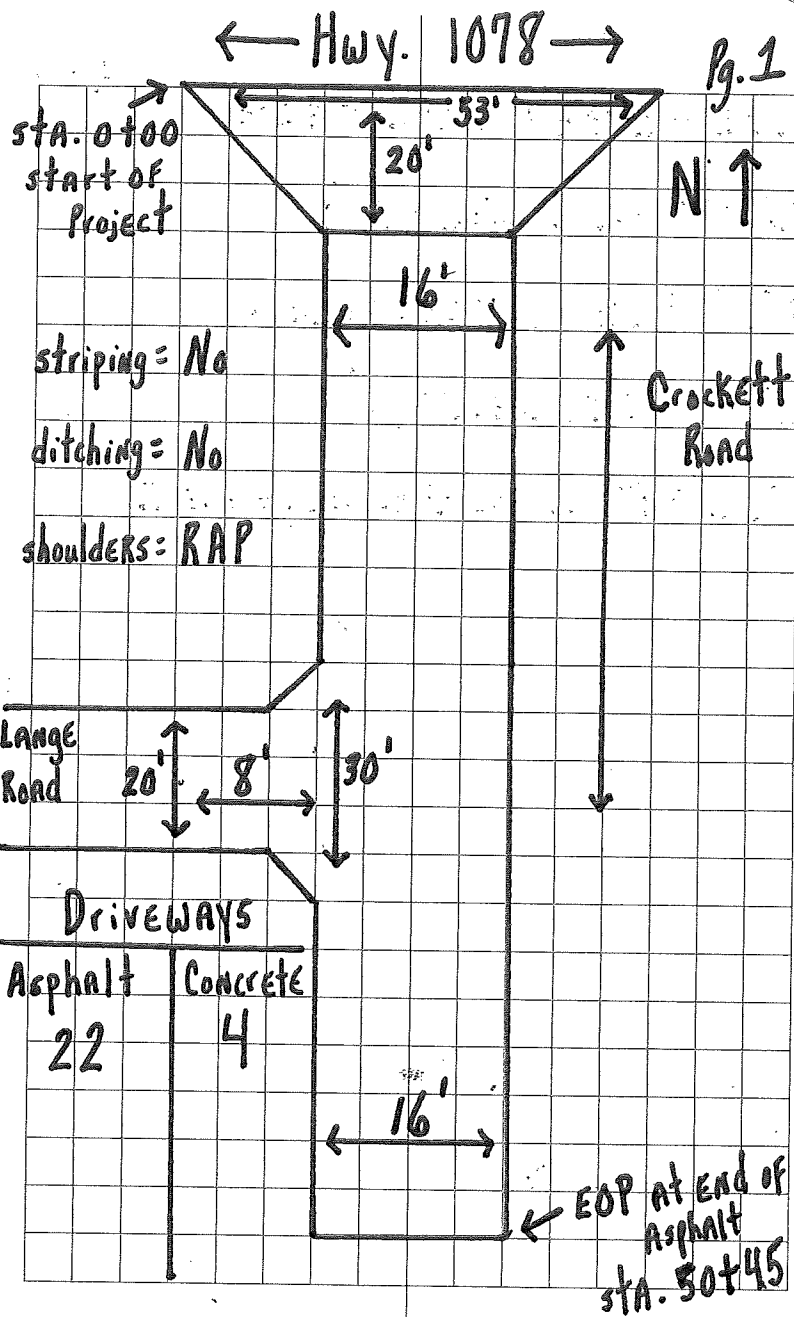 Hwy. 1078
Pg. 1
53'
sta. 0+00
start of
Project
20'
N
16'
striping = No
ditching = No
shoulders = RAP
Crockett
Road
LANGE
Road
20'
8'
30'
Driveways
Asphalt
Concrete
22
4
16'
EOP at End of
Asphalt
sta. 50+45